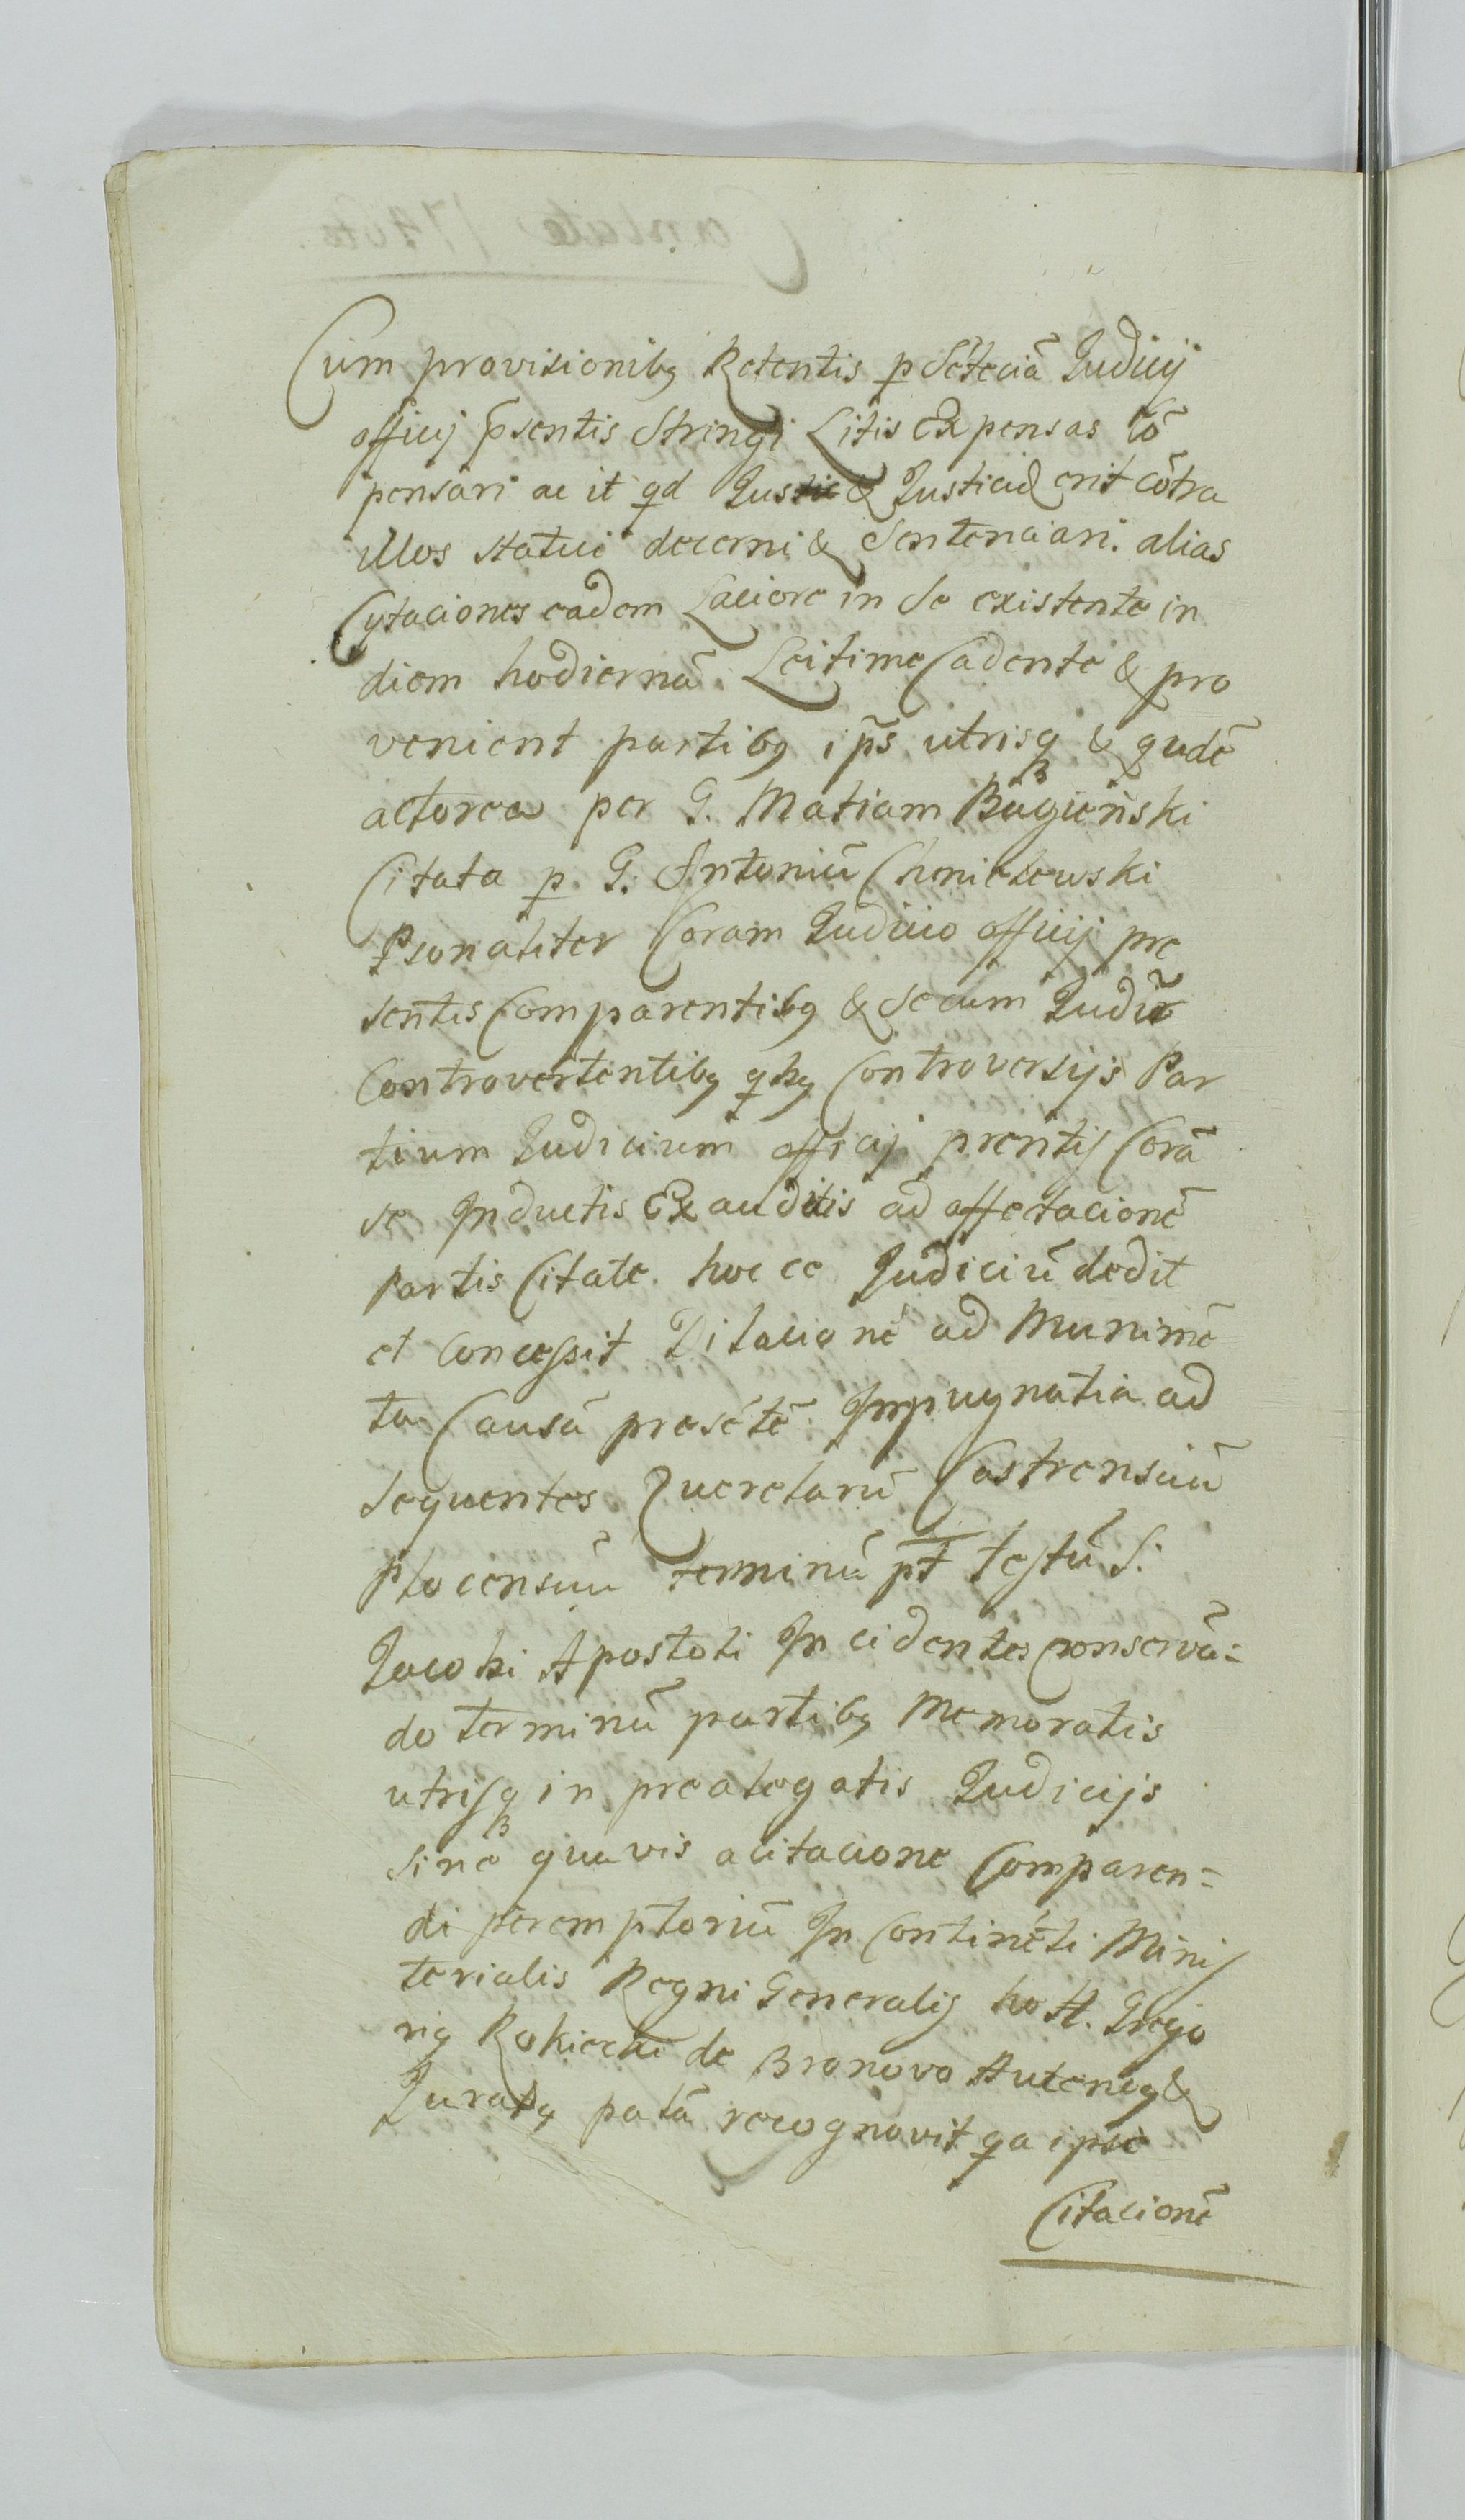 Cum provisionibꝫ Retentis p Sẽtẽciã Judicij
officij p̃sentis Stringi Litis Expensas Cõ
pensari ac it qd Jus & Justicia erit cõtra
illos statui decerni & Sentenciari alias
Cytaciones eadem Laciore in Se existente in
diem hodiernã Leitime Cadente & pro
venient partibꝫ ip̃s utrisq & qudẽ
actorea per G. Matiam Bagieński
Citata p G. Antoniũ Chmielewski
Psonaliter Coram Judicio officij pre
sentis Comparentibꝫ & Secum Judir̃
Controvertentibꝫ qbꝫ Controversijs Par
tium Judicium officij prentis Corã
se Inductis Exauditis ad affectacionẽ
Partis Citate hocce Judiciũ dedit
et Concessit Dilacionẽ ad Munimẽ
ta Causã presẽtẽ Impugnatia ad
sequentes Querelarũ Castrensiũ
Plocensiũ terminũ pt̃ festũ S.
Jacobi Apostoli Incidentes conservã=
do terminũ partibꝫ Memoratis
utrisq in prealegatis Judicijs
Sine quavis acitacione Comparen=
di peremptoriũ In Continẽti Minis
terialis Regni Generalis ho H. Grego
riꝫ Rokicchi de Bronovo Autenꝫ &
Juratꝫ palã recognovit qa ipse
Citacionẽ